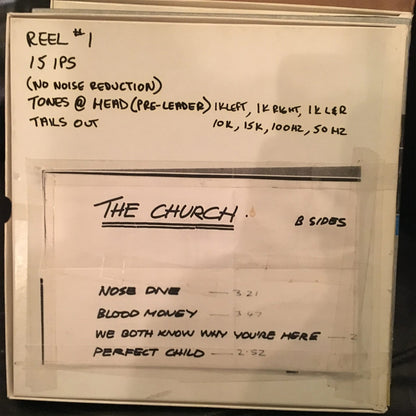 REEL #1
15 IPS
(NO NOISE REDUCTION)
TONES @ HEAD (PRE-LEADER) 1K LEFT, 1K RIGHT, 1K L&R
TAILS OUT 10K, 15K, 100HZ, 50HZ
THE CHURCH.
B SIDES
NOSE DIVE — 3 21
BLOOD MONEY — 3 47
WE BOTH KNOW WHY YOU'RE HERE — 2
PERFECT CHILD — 2.52